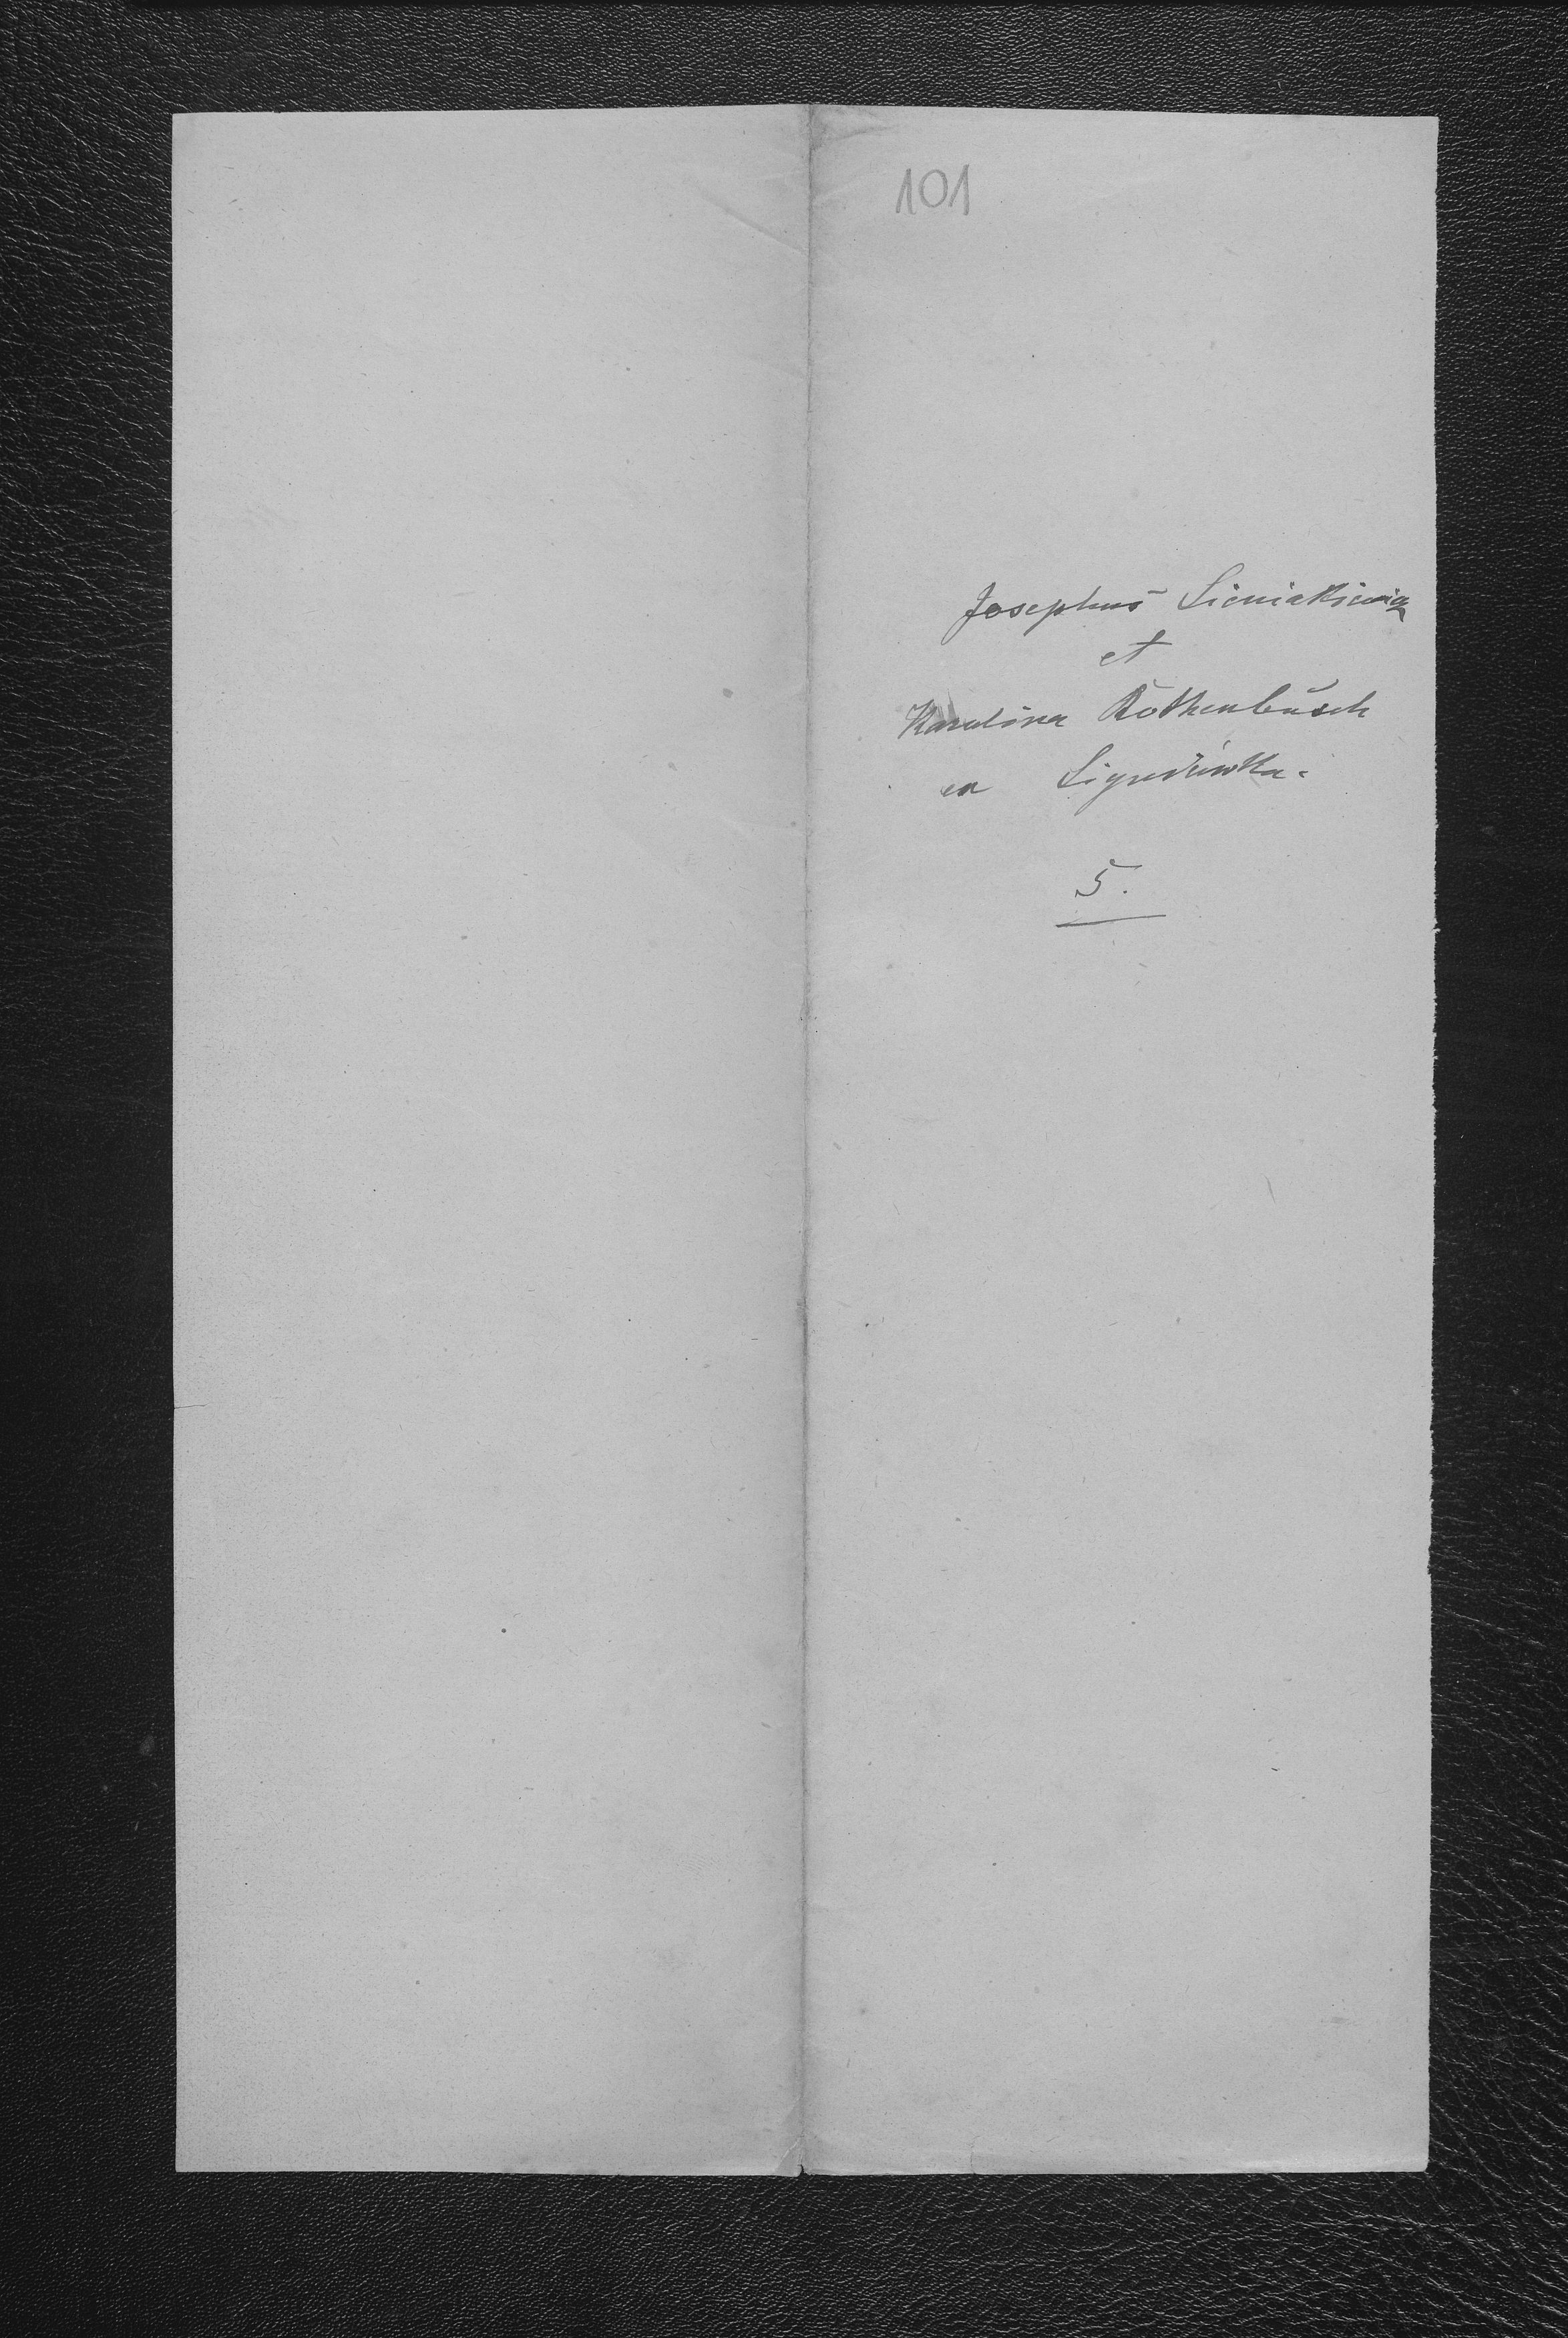 101
Josephus Sieniakiewicz
et
Karolina Rothenbusch
ex
5.